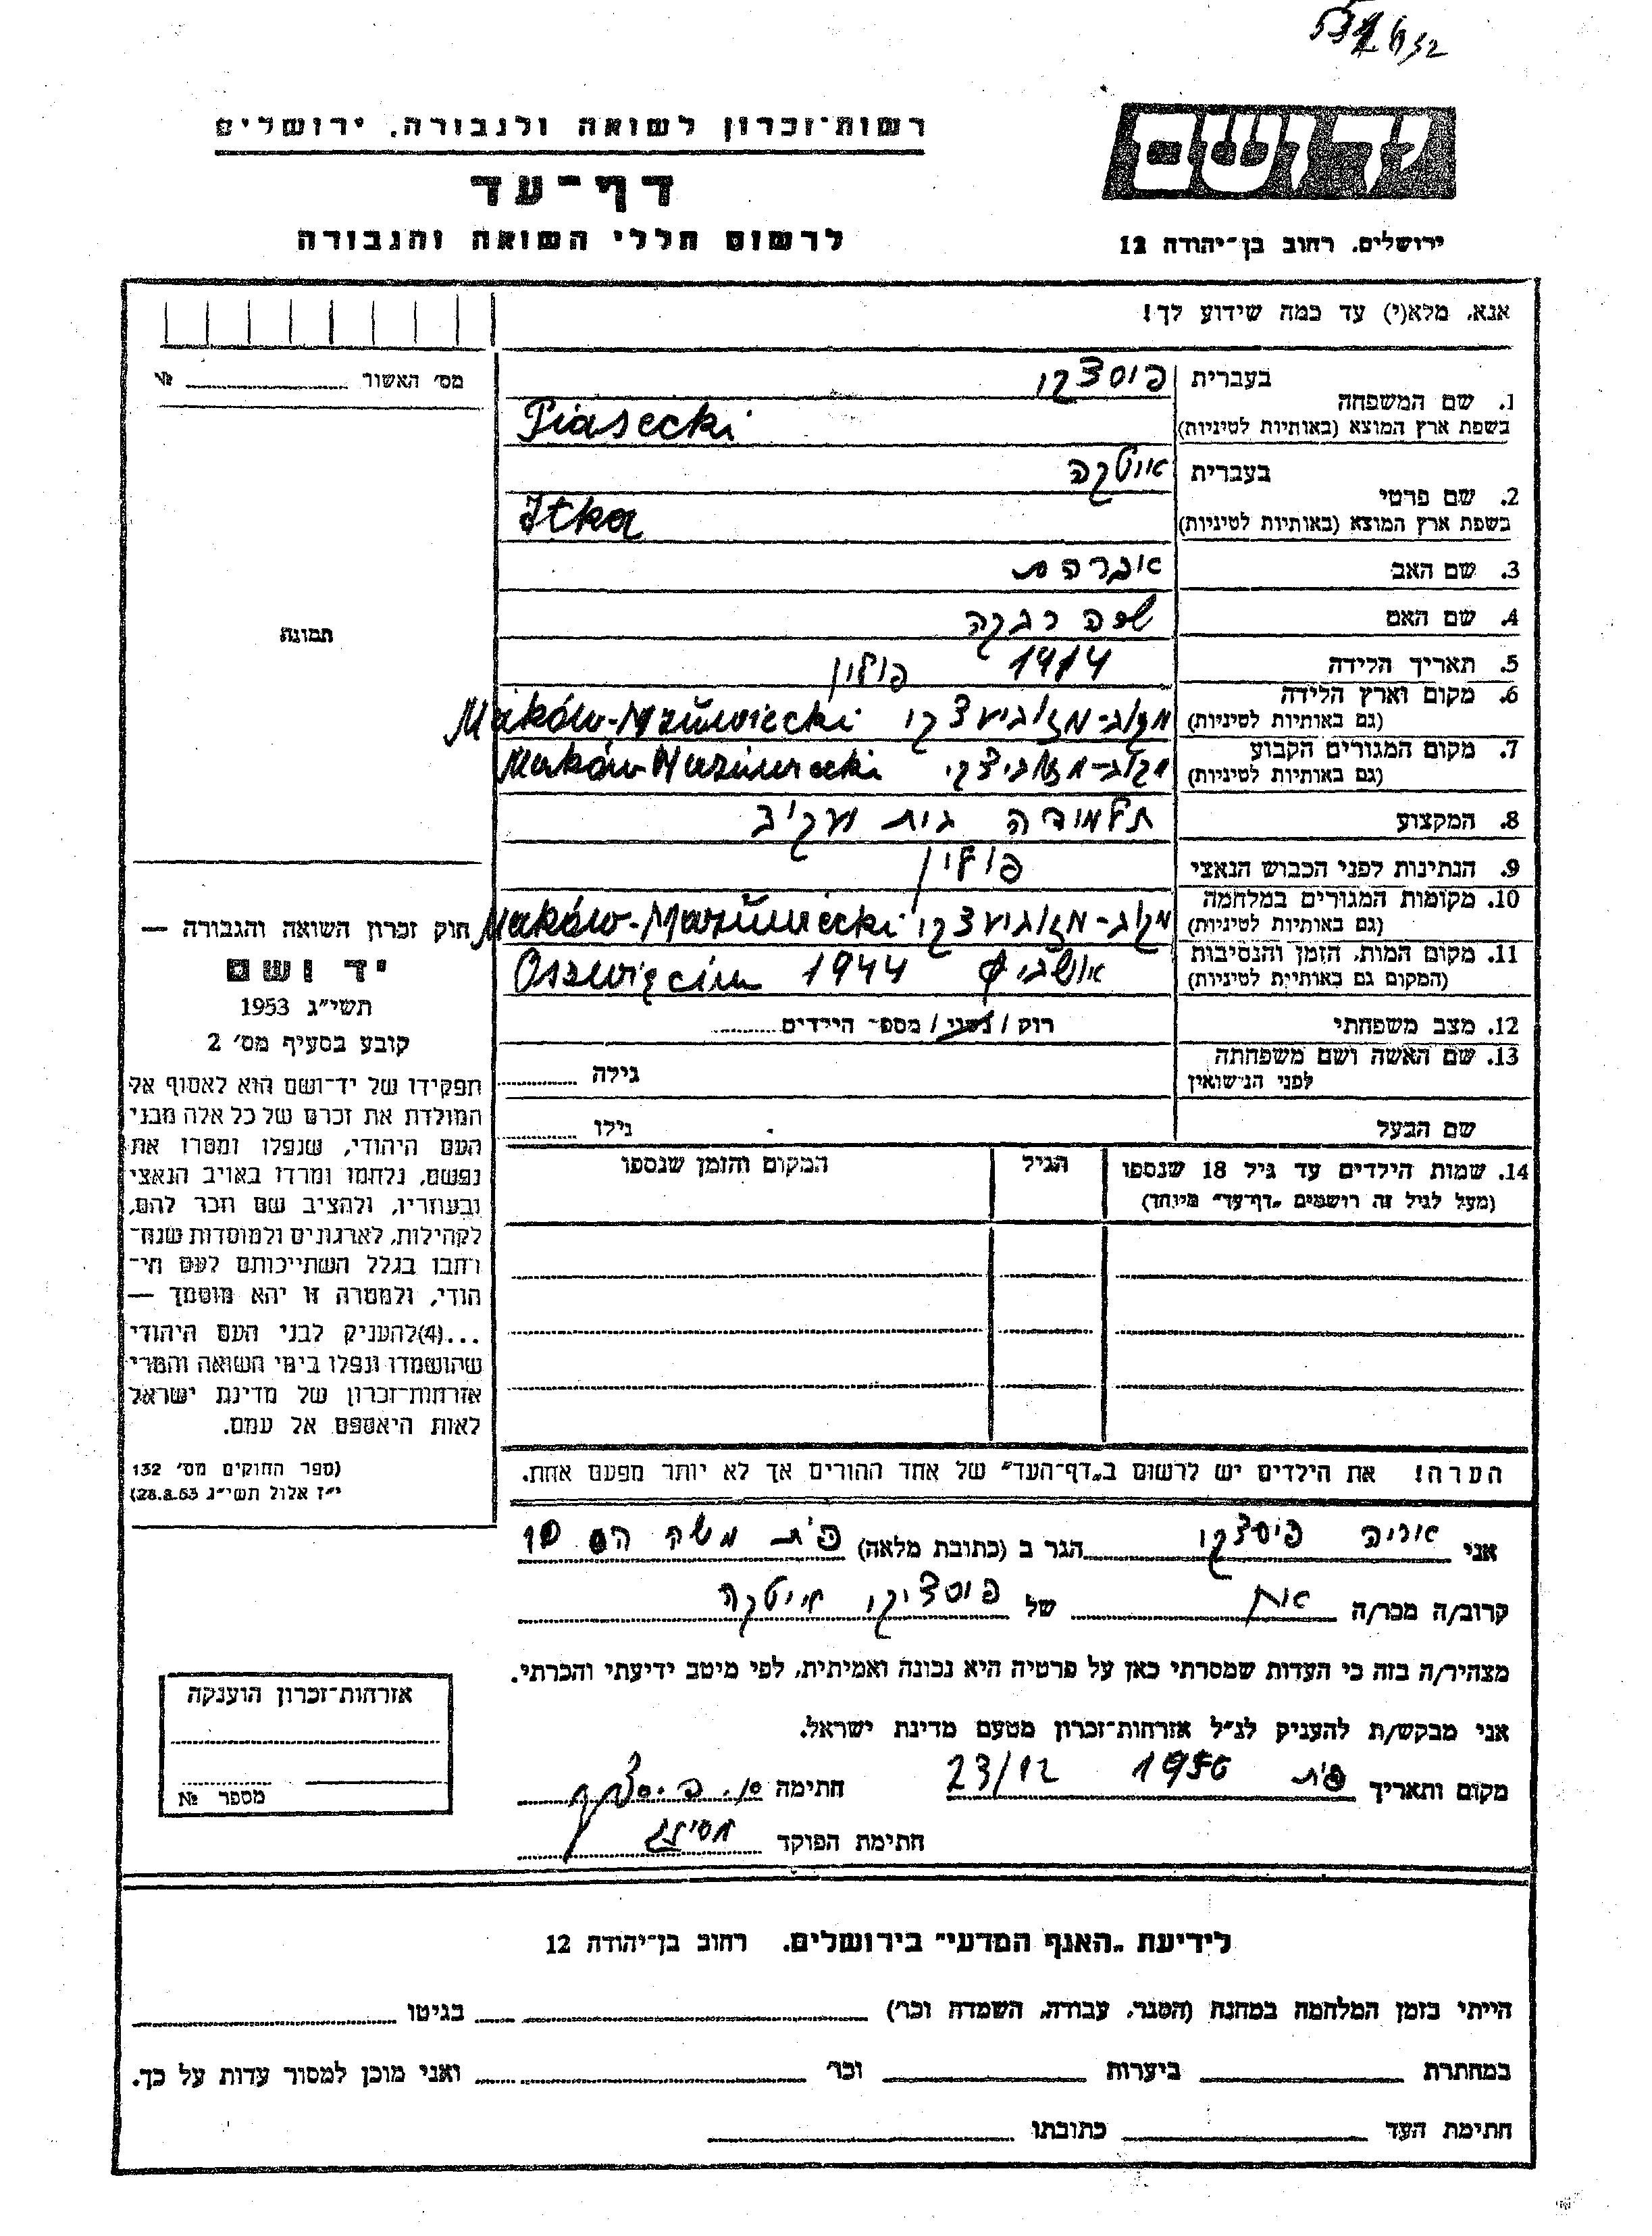 רשות־זכרון לשואה ולגבורה. ירושלים
יד ושם
דף־עד
לרשום חללי השואה והגבורה
ירושלים. רחוב בן־יהודה 12
אנא. מלא(י) עד כמה שידוע לך!
מס׳ האשור № 
בעברית פיסצקי
1. שם המשפחה
בשפת ארץ המוצא (באותיות לטיניות) Piasecki
בעברית איטקה
2. שם פרטי
בשפת ארץ המוצא (באותיות לטיניות) Itka
3. שם האב אברהם
4. שם האם שרה רבקה
5. תאריך הלידה 1914
6. מקום וארץ הלידה פולין
(גם באותיות לטיניות) מקוב-מזוביעצקי Maków-Mazowiecki
7. מקום המגורים הקבוע
(גם באותיות לטיניות) מקוב-מזוביצקי Maków-Mazowiecki
8. המקצוע תלמידה בית יעקב
9. הנתינות לפני הכבוש הנאצי פולין
10. מקומות המגורים במלחמה
(גם באותיות לטיניות) מקוב-מזוביעצקי Maków-Mazowiecki
11. מקום המות, הזמן והנסיבות
(המקום גם באותיות לטיניות) 1944 Oszwięcim
12. מצב משפחתי רוק / נשוי / מספ־ הילדים
13. שם האשה ושם משפחתה
לפני הנישואין גילה
שם הבעל גילו
14. שמות הילדים עד גיל 18 שנספו הגיל המקום והזמן שנספו
(מעל לגיל זה רושמים „דף־עד״ מיוחד)
הערה! את הילדים יש לרשום ב„דף־העד״ של אחד ההורים אך לא יותר מפעם אחת.
תמונה
חוק זכרון השואה והגבורה —
יד ושם
תשי״ג 1953
קובע בסעיף מס׳ 2
תפקידו של יד־ושם הוא לאסוף אל
המולדת את זכרם של כל אלה מבני
העם היהודי, שנפלו ומסרו את
נפשם, נלחמו ומרדו באויב הנאצי
ובעוזריו, ולהציב שם וזכר להם,
לקהילות, לארגונים ולמוסדות שנח־
רחבו בגלל השתייכותם לעם הי־
הודי, ולמטרה זו יהא מוסמך —
...(4)להעניק לבני העם היהודי
שהושמדו ונפלו בימי השואה והמרי
אזרחות־זכרון של מדינת ישראל
לאות היאספם אל עמם.
(ספר החוקים מס׳ 132
י״ז אלול תשי״ג 28.8.53)
אני פיסצקי הגר ב (כתובת מלאה) פ״ת משה הס 10
קרוב/ה מכר/ה אח של פיסציקי איטקה
מצהיר/ה בזה כי העדות שמסרתי כאן על פרטיה היא נכונה ואמיתית, לפי מיטב ידיעתי והכרתי.
אני מבקש/ת להעניק לנ״ל אזרחות־זכרון מטעם מדינת ישראל.
מקום ותאריך פ״ת 1956 23/12 חתימה
חתימת הפוקד
אזרחות־זכרון הוענקה
מספר №
לידיעת „האגף המדעי״ בירושלים. רחוב בן־יהודה 12
הייתי בזמן המלחמה במחנה (הסגר, עבודה, השמדה וכר׳) בגיטו
במחתרת ביערות וכר׳ ואני מוכן למסור עדות על כך.
חתימת העד כתובתו